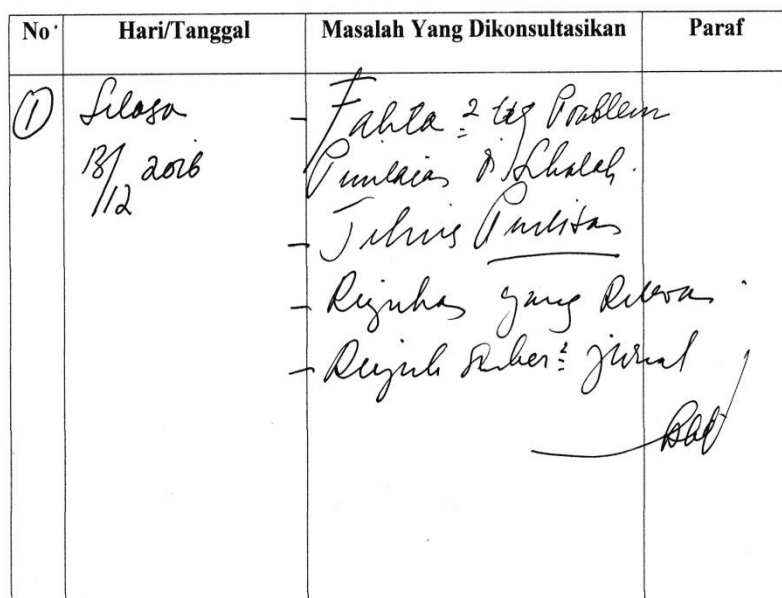 No Hari/Tanggal Masalah Yang Dikonsultasikan Paraf
① Selasa - Fakta 2 ttg Problem
13/12 2016 Penilaian di Sekolah.
- Teknis Penulisan
- Rujukan yang Relevan
- Rujuk Sumber 2 jurnal